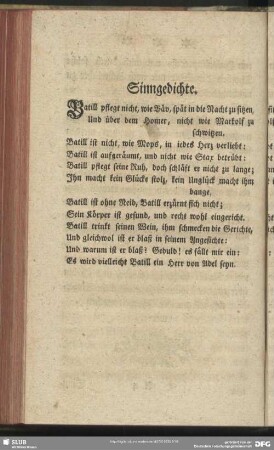 Sinngedichte.
Batill pflegt nicht, wie Bäv, spät in die Nacht zu sitzen,
Und über dem Homer, nicht wie Markolf zu
schwitzen.
Batill ist nicht, wie Mops, in iedes Herz verliebt:
Batill ist aufgeräumt, und nicht wie Star betrübt:
Batill pflegt seine Ruh, doch schläft er nicht zu lange;
Ihn macht kein Glücke stolz, kein Unglück macht ihm
bange.
Batill ist ohne Neid, Batill erzürnt sich nicht;
Sein Körper ist gesund, und recht wohl eingericht.
Batill trinkt seinen Wein, ihm schmecken die Gerichte,
Und gleichwol ist er blaß in seinem Angesichte:
Und warum ist er blaß? Geduld! es fällt mir ein:
Es wird vielleicht Batill ein Herr von Adel seyn.
SLUB
DFG